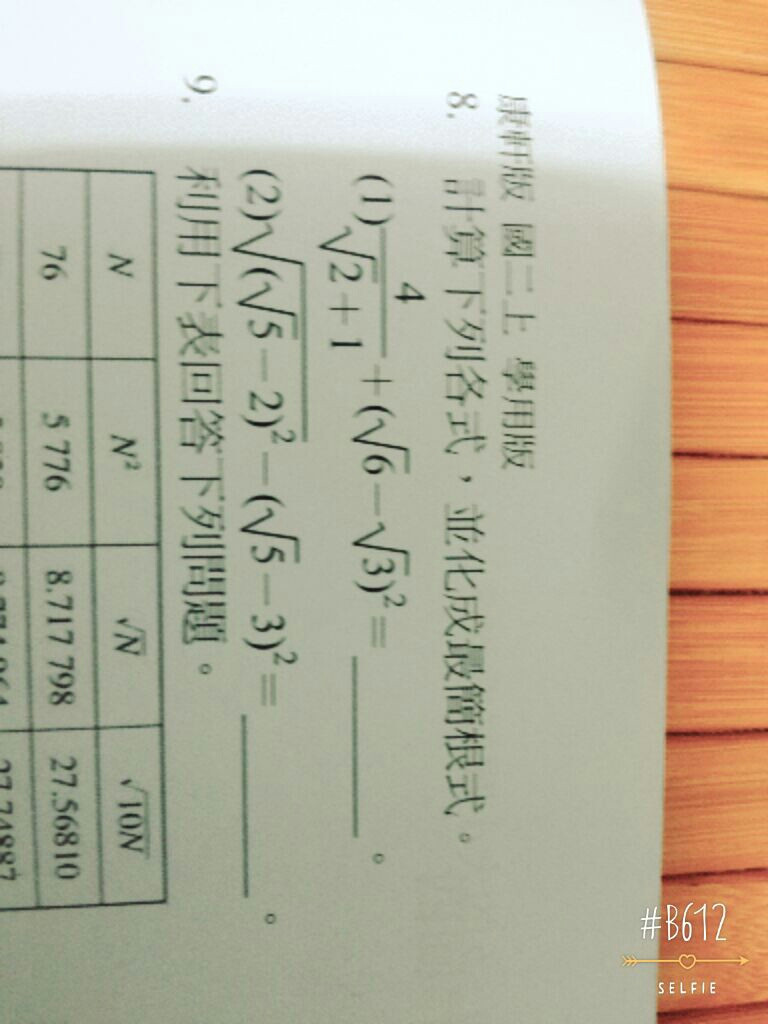 康軒版 國二上 學用版
8. 計算下列各式，並化成最簡根式。
(1) 4/(√2+1) + (√6−√3)² = ______。
(2) √(√5−2)² − (√5−3)² = ______。
9. 利用下表回答下列問題。
N N² √N √10N
76 5 776 8.717 798 27.56810
#B612
SELFIE